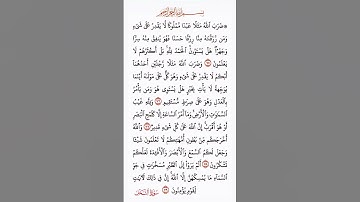 بِسْمِ ٱللَّهِ ٱلرَّحْمَٰنِ ٱلرَّحِيمِ
۞ ضَرَبَ ٱللَّهُ مَثَلًا عَبْدًا مَّمْلُوكًا لَّا يَقْدِرُ عَلَىٰ شَىْءٍ
وَمَن رَّزَقْنَٰهُ مِنَّا رِزْقًا حَسَنًا فَهُوَ يُنفِقُ مِنْهُ سِرًّا
وَجَهْرًا هَلْ يَسْتَوُۥنَ ٱلْحَمْدُ لِلَّهِ بَلْ أَكْثَرُهُمْ لَا
يَعْلَمُونَ ۝ وَضَرَبَ ٱللَّهُ مَثَلًا رَّجُلَيْنِ أَحَدُهُمَآ
أَبْكَمُ لَا يَقْدِرُ عَلَىٰ شَىْءٍ وَهُوَ كَلٌّ عَلَىٰ مَوْلَىٰهُ أَيْنَمَا
يُوَجِّههُّ لَا يَأْتِ بِخَيْرٍ هَلْ يَسْتَوِى هُوَ وَمَن يَأْمُرُ
بِٱلْعَدْلِ وَهُوَ عَلَىٰ صِرَٰطٍ مُّسْتَقِيمٍ ۝ وَلِلَّهِ غَيْبُ
ٱلسَّمَٰوَٰتِ وَٱلْأَرْضِ وَمَآ أَمْرُ ٱلسَّاعَةِ إِلَّا كَلَمْحِ ٱلْبَصَرِ
أَوْ هُوَ أَقْرَبُ إِنَّ ٱللَّهَ عَلَىٰ كُلِّ شَىْءٍ قَدِيرٌ ۝ وَٱللَّهُ
أَخْرَجَكُم مِّنۢ بُطُونِ أُمَّهَٰتِكُمْ لَا تَعْلَمُونَ شَيْـًٔا
وَجَعَلَ لَكُمُ ٱلسَّمْعَ وَٱلْأَبْصَٰرَ وَٱلْأَفْـِٔدَةَ لَعَلَّكُمْ
تَشْكُرُونَ ۝ أَلَمْ يَرَوْا۟ إِلَى ٱلطَّيْرِ مُسَخَّرَٰتٍ فِى جَوِّ
ٱلسَّمَآءِ مَا يُمْسِكُهُنَّ إِلَّا ٱللَّهُ إِنَّ فِى ذَٰلِكَ لَءَايَٰتٍ
لِّقَوْمٍ يُؤْمِنُونَ ۝
سُورَةُ النَّحْلِ